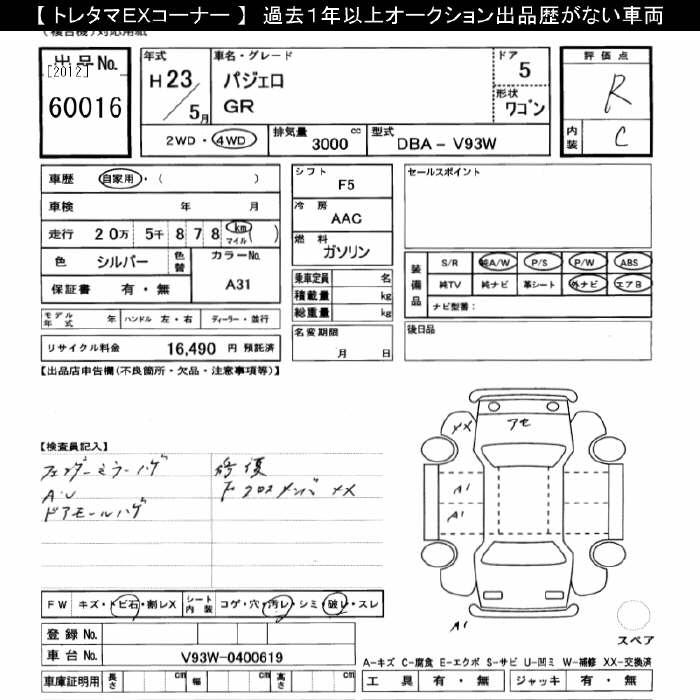 【 トレタマEXコーナー 】 過去１年以上オークション出品歴がない車両
出品No.
[2012]
60016
年式
H 23 / 5月
車名・グレード
パジェロ
GR
ドア
5
形状
ワゴン
評価点
R
内装
C
2WD・4WD
排気量 3000 cc
型式 DBA - V93W
車歴 自家用・( )
車検 年 月
走行 20万 5千 8 7 8 km マイル ( )
色 シルバー
色替
カラーNo.
A31
保証書 有・無
モデル年式 年
ハンドル 左・右
ディーラー・並行
リサイクル料金 16,490 円 預託済
シフト
F5
冷房
AAC
燃料
ガソリン
乗車定員 名
積載量 kg
総重量 kg
名変期限
月 日
セールスポイント
装備品
S/R 純A/W P/S P/W ABS
純TV 純ナビ 革シート 外ナビ エアB
ナビ型番:
後日品
【出品店申告欄(不良箇所・欠品・注意事項等)】
【検査員記入】
フェンダーミラーハゲ
A・U
ドアモールハゲ
修復
F クロスメンバ XX
XX
アセ
A1
A1
A1
スペア
FW キズ・トビ石・割レX
シート内装 コゲ・穴・汚レ・シミ・破レ・スレ
登録 No.
車台 No. V93W-0400619
車庫証明用 長さ cm 幅 cm 高さ cm
A-キズ C-腐食 E-エクボ S-サビ U-凹ミ W-補修 XX-交換済
工具 有・無 ジャッキ 有・無